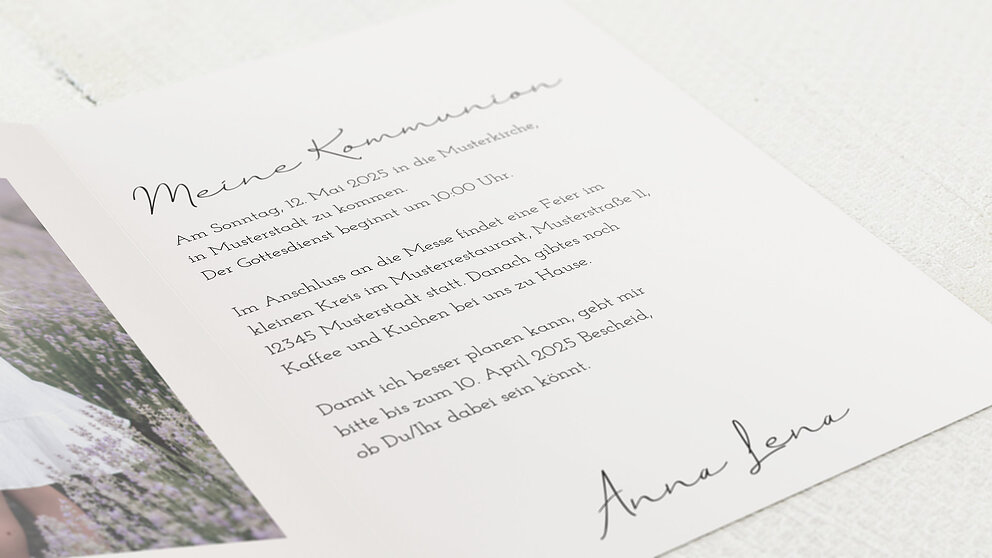 Meine Kommunion
Am Sonntag, 12. Mai 2025 in die Musterkirche,
in Musterstadt zu kommen.
Der Gottesdienst beginnt um 10.00 Uhr.
Im Anschluss an die Messe findet eine Feier im
kleinen Kreis im Musterrestaurant, Musterstraße 11,
12345 Musterstadt statt. Danach gibtes noch
Kaffee und Kuchen bei uns zu Hause.
Damit ich besser planen kann, gebt mir
bitte bis zum 10. April 2025 Bescheid,
ob Du/Ihr dabei sein könnt.
Anna Lena